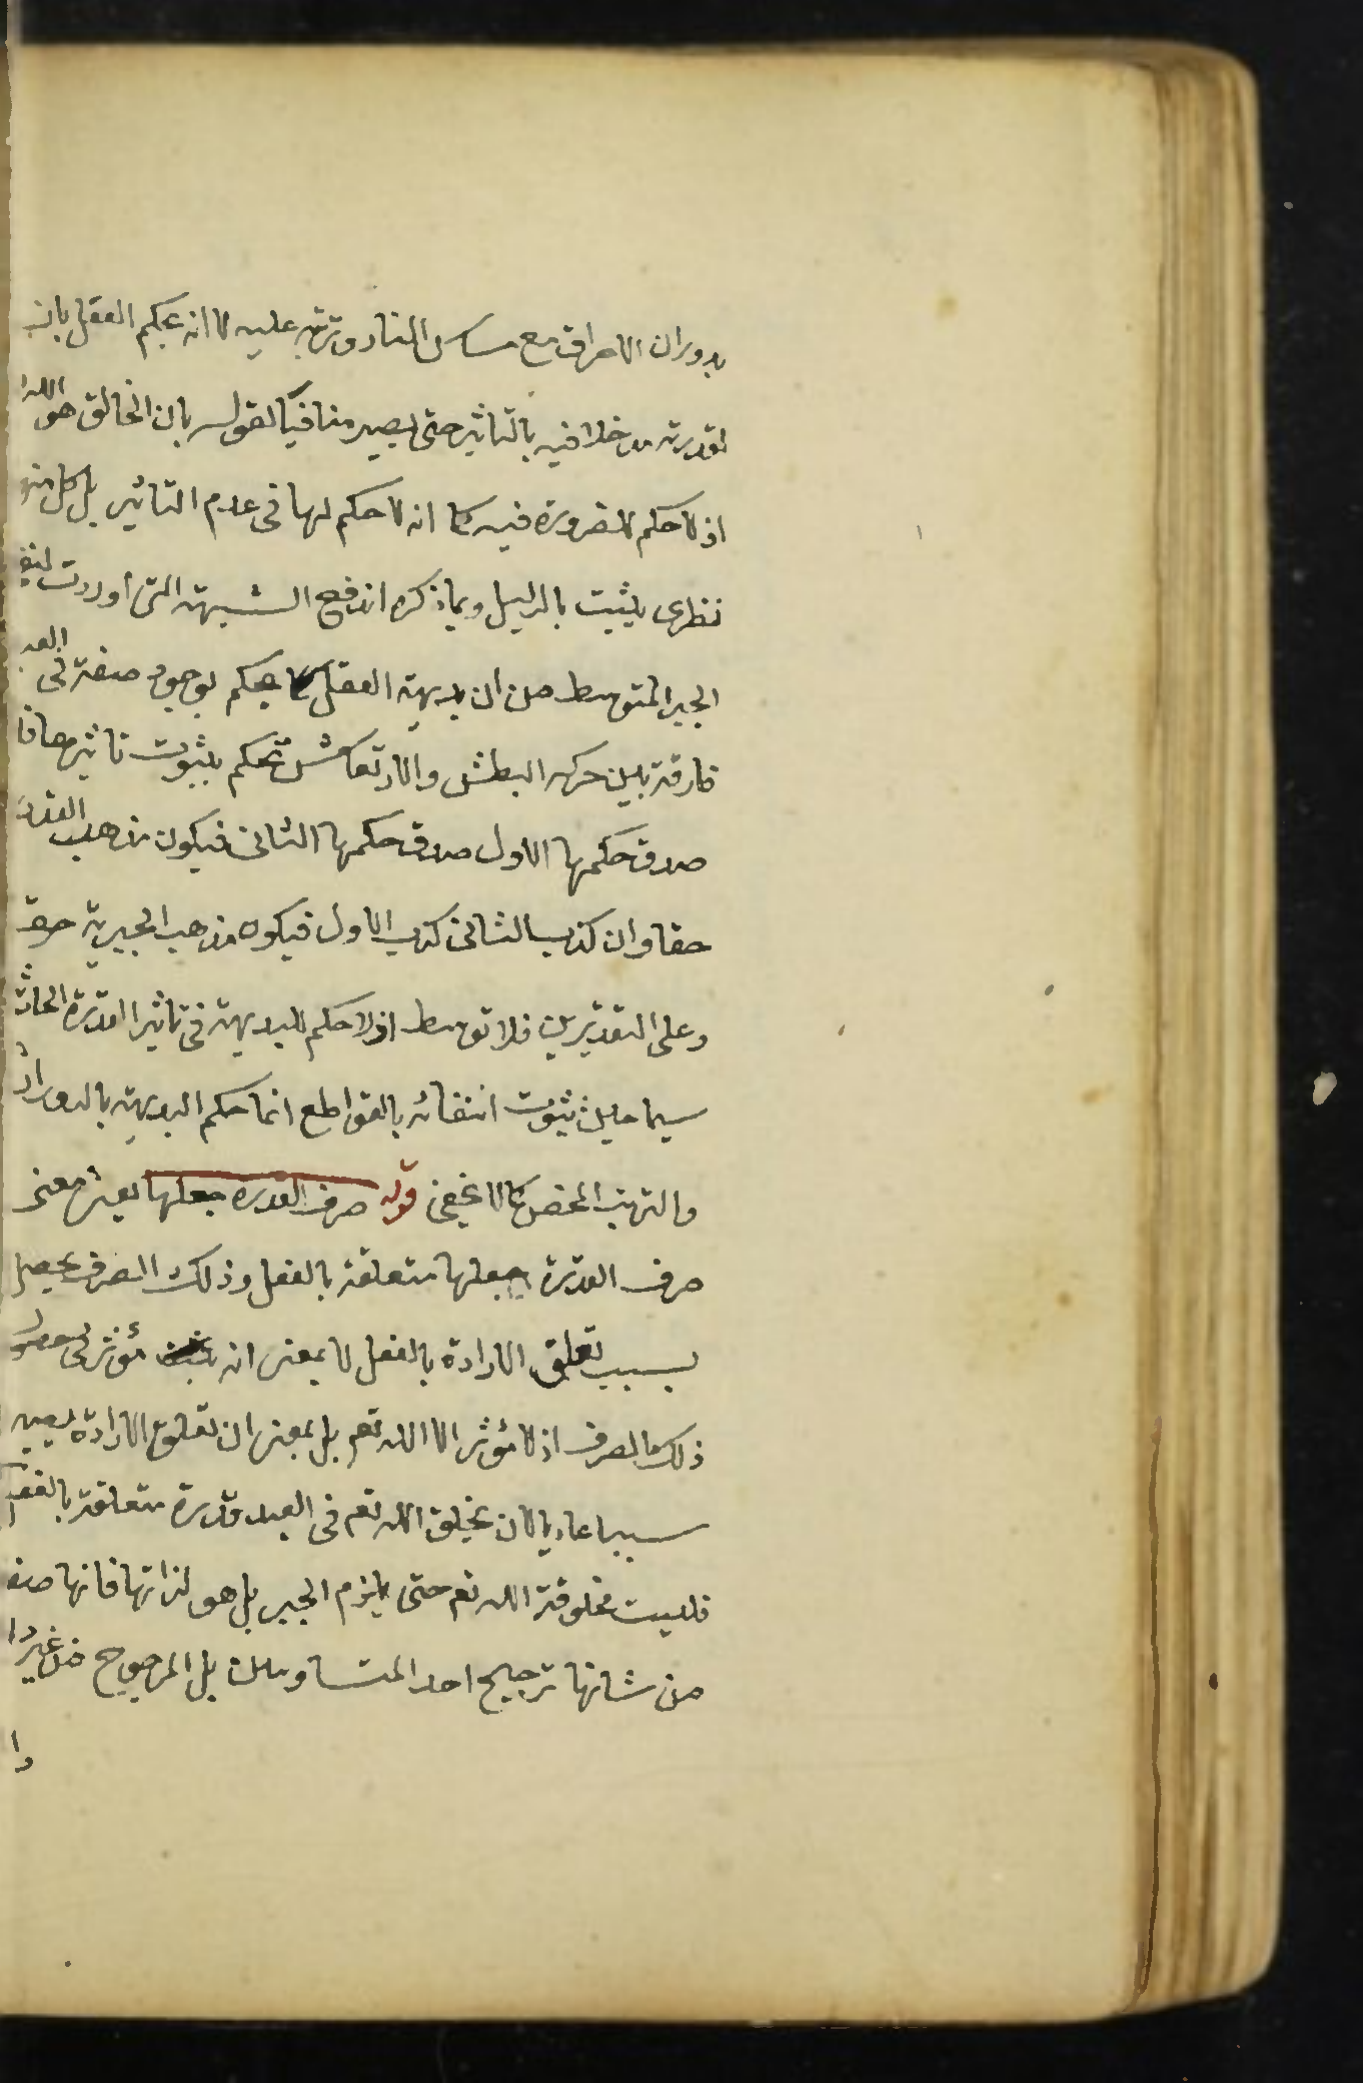 بدوران الاحراق مع مساس النار وترتبه عليه لا انه يحكم العقل بان
لقدرته مدخلا فيه بالتاثير حتى يصير منافيا لقوله بان الخالق هو الله
اذ لا حكم للضرورة فيه كما انه لا حكم لها في عدم التاثير بل كل منها
نظرى يثبت بالدليل وبما ذكره اندفع الشبهة التى اوردت لنفى
الجبر المتوسط من ان بديهة العقل كما يحكم بوجود صفة فى العبد
فارقة بين حركة البطش والارتعاش تحكم بثبوت تاثيرها فا
صدق حكمها الاول صدق حكمها الثانى فيكون مذهب القدر
حقا وان كذب الثانى كذب الاول فيكون مذهب الجبرية حقا
وعلى التقديرين فلا توسط اذ لا حكم للبديهة فى تاثير القدرة الحادث
سيما حين ثبوت انتفائه بالقواطع انما حكم البديهة بالدوران
والترتب المحض كما لا يخفى قوله صرف القدرة جعلها يعنى معنى
صرف القدرة جعلها متعلقة بالفعل وذلك الصرف يحصل
بسبب تعلق الارادة بالفعل لا بمعنى انه مؤثر فى حصول
ذلك الصرف اذ لا مؤثر الا الله تعم بل بمعنى ان تعلق الارادة يصير
سببا عاديا لان يخلق الله تعم فى العبد قدرة متعلقة بالفعل
فليست مخلوقة الله تعم حتى يلزم الجبر بل هو لذاتها فانها صفة
من شانها ترجيح احد المتساويين بل المرجوح من غير دا
دا